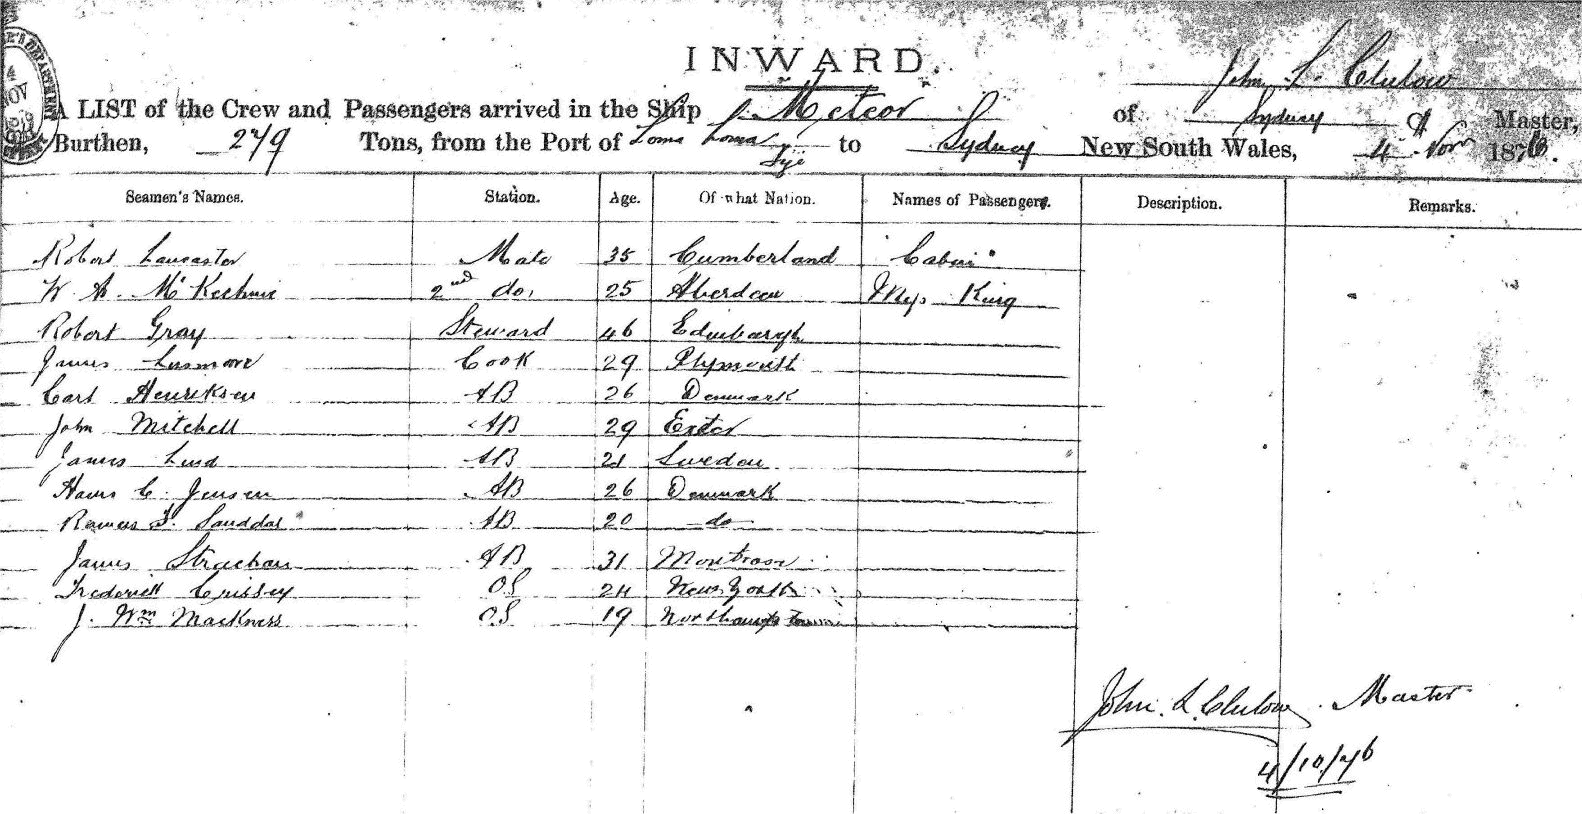 INWARD.
John L. Clulow
A LIST of the Crew and Passengers arrived in the Ship Meteor of Sydney Master,
Burthen, 279 Tons, from the Port of Loma Loma Fiji to Sydney New South Wales, 4 Novr 1876.
Seamen's Names. Station. Age. Of what Nation. Names of Passengers. Description. Remarks.
Robert Lancaster Mate 35 Cumberland "Cabin"
W. A. McKechnie 2nd do, 25 Aberdeen Mrs. King
Robert Gray Steward 46 Edinburgh
James Lusmore Cook 29 Plymouth
Carl Henriksen AB 26 Denmark
John Mitchell AB 29 Exeter
James Lind AB 21 Sweden
Hans C. Jensen AB 26 Denmark
AB 20 do
James Strachan AB 31 Montrose
Frederick Crissey OS 24 New York
J. Wm Mackness OS 19 Northampton
John. L. Clulow. Master
4/10/76